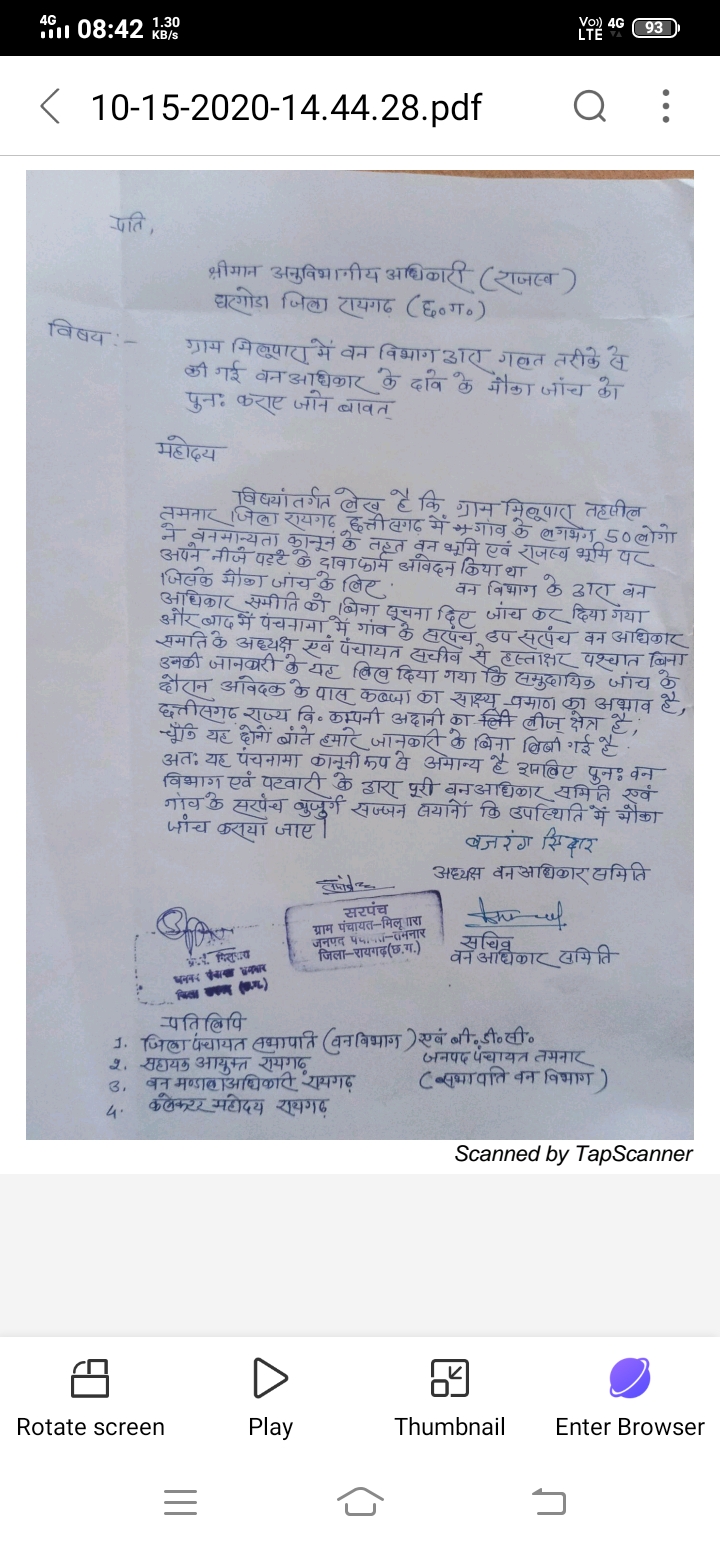 4G 08:42 1.30 KB/s Vo)) LTE 4G 93
10-15-2020-14.44.28.pdf
प्रति,
श्रीमान अनुविभागीय अधिकारी (राजस्व)
घरगोडा जिला रायगढ़ (छ०ग०)
विषय :- ग्राम मिलूपारा में वन विभाग द्वारा गलत तरीके से
की गई वन अधिकार के दावे के मौका जांच को
पुनः कराए जाने बावत्
महोदय
विषयांतर्गत लेख है कि, ग्राम मिलूपारा तहसील
तमनार जिला रायगढ़ छत्तीसगढ़ में गांव के लगभग 50 लोगो
ने वनमान्यता कानून के तहत वन भूमि एवं राजस्व भूमि पर
अपने नीजे पट्टे के दावाफार्म आवेदन किया था
जिसके मौका जांच के लिए वन विभाग के द्वारा वन
अधिकार समीति को बिना सूचना दिए जांच कर दिया गया
और बाद में पंचनामा में गांव के सरपंच, उप सरपंच वन अधिकार
समति के अध्यक्ष एवं पंचायत सचीव से हस्ताक्षर पश्चात बिना
उनकी जानकारी के यह लिख दिया गया कि समुदायिक जांच के
दौरान आवेदक के पास कब्जा का साक्ष्य प्रमाण का अभाव है,
छत्तीसगढ़ राज्य वि० कम्पनी अदानी का लीज क्षेत्र है;
चूँकि यह दोनों बाते हमारे जानकारी के बिना लिखी गई है
अतः यह पंचनामा कानूनी रूप से अमान्य है इसलिए पुनः वन
विभाग एवं पटवारी के द्वारा पूरी वन अधिकार समिति एवं
गांव के सरपंच बुजुर्ग सज्जन सयानों कि उपस्थिति में मौका
जांच कराया जाए।
बजरंग सिदार
अध्यक्ष वन अधिकार समिति
सरपंच
ग्राम पंचायत-मिलूपारा
जनपद पंचायत-तमनार
जिला-रायगढ़(छ.ग.)
सचिव
वन अधिकार समिति
प्रतिलिपि
1. जिला पंचायत सभापति (वन विभाग) एवं बी.डी.सी.
जनपद पंचायत तमनार
(सभापति वन विभाग)
2. सहायक आयुक्त रायगढ़
3. वन मण्डलाअधिकारी रायगढ़
4. कलेक्टर महोदय रायगढ़
Scanned by TapScanner
Rotate screen Play Thumbnail Enter Browser